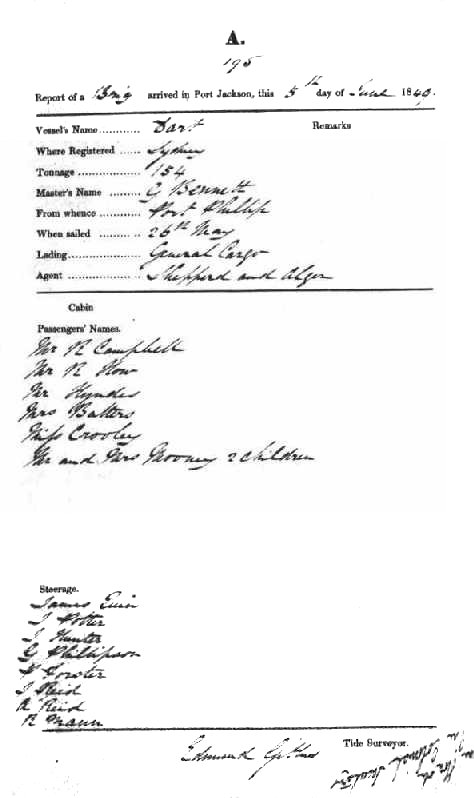 A.
195
Report of a Brig arrived in Port Jackson, this 5th day of June 1840.
Vessel's Name ........... Dart Remarks
Where Registered ...... Sydney
Tonnage .................. 154
Master's Name ......... G Bennett
From whence ............ Port Phillip
When sailed ........... 26th May
Lading..................... General Cargo
Agent ..................... Shepperd and Alger
Cabin
Passengers' Names.
Mr R Campbell
Mr R How
Mr Hyndes
Mrs Batters
Miss Crooley
Mr and Mrs Mooney 2 Children
Steerage.
James
J Potter
J Hunter
G Phillipson
Fowler
J Reid
A Reid
R Mann
Edmund
Tide Surveyor.